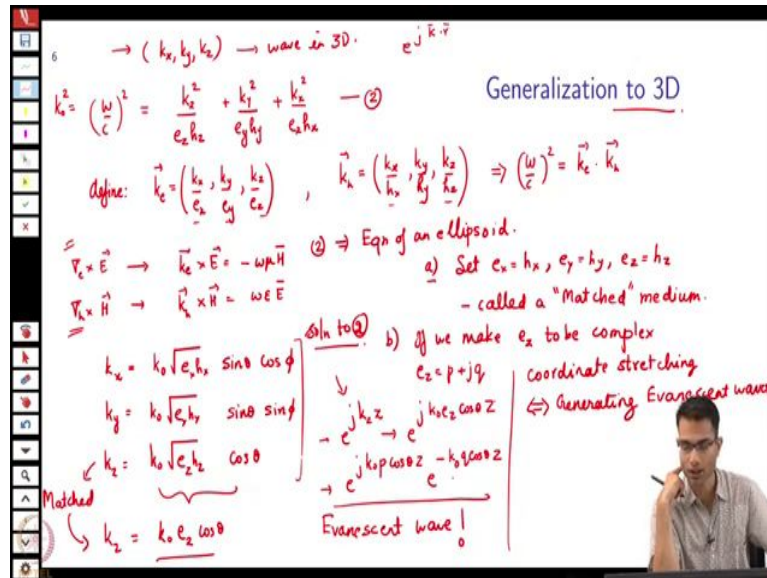 6
→ (kx, ky, kz) → wave in 3D. e^{j k̄·r̄}
Generalization to 3D
k₀² = (w/c)² = kz²/(ez hz) + ky²/(ey hy) + kx²/(ex hx) — ②
define: k⃗e = (kx/ex, ky/ey, kz/ez) , k⃗h = (kx/hx, ky/hy, kz/hz) ⇒ (w/c)² = k⃗e · k⃗h
∇e × E⃗ → k⃗e × E⃗ = -ωμ H̄
∇h × H⃗ → k⃗h × H⃗ = ωε Ē
② ⇒ Eqn of an ellipsoid.
a) Set ex = hx, ey = hy, ez = hz
- called a "Matched" medium.
kx = k₀ √(ex hx) sinθ cosϕ
ky = k₀ √(ey hy) sinθ sinϕ
kz = k₀ √(ez hz) cosθ
Matched
kz = k₀ ez cosθ
Soln to ②
b) If we make ez to be complex
ez = p + jq
→ e^{j kz z} → e^{j k₀ ez cosθ z}
→ e^{j k₀ p cosθ z} e^{-k₀ q cosθ z}
Evanescent wave!
coordinate stretching
⇔ Generating Evanescent wave